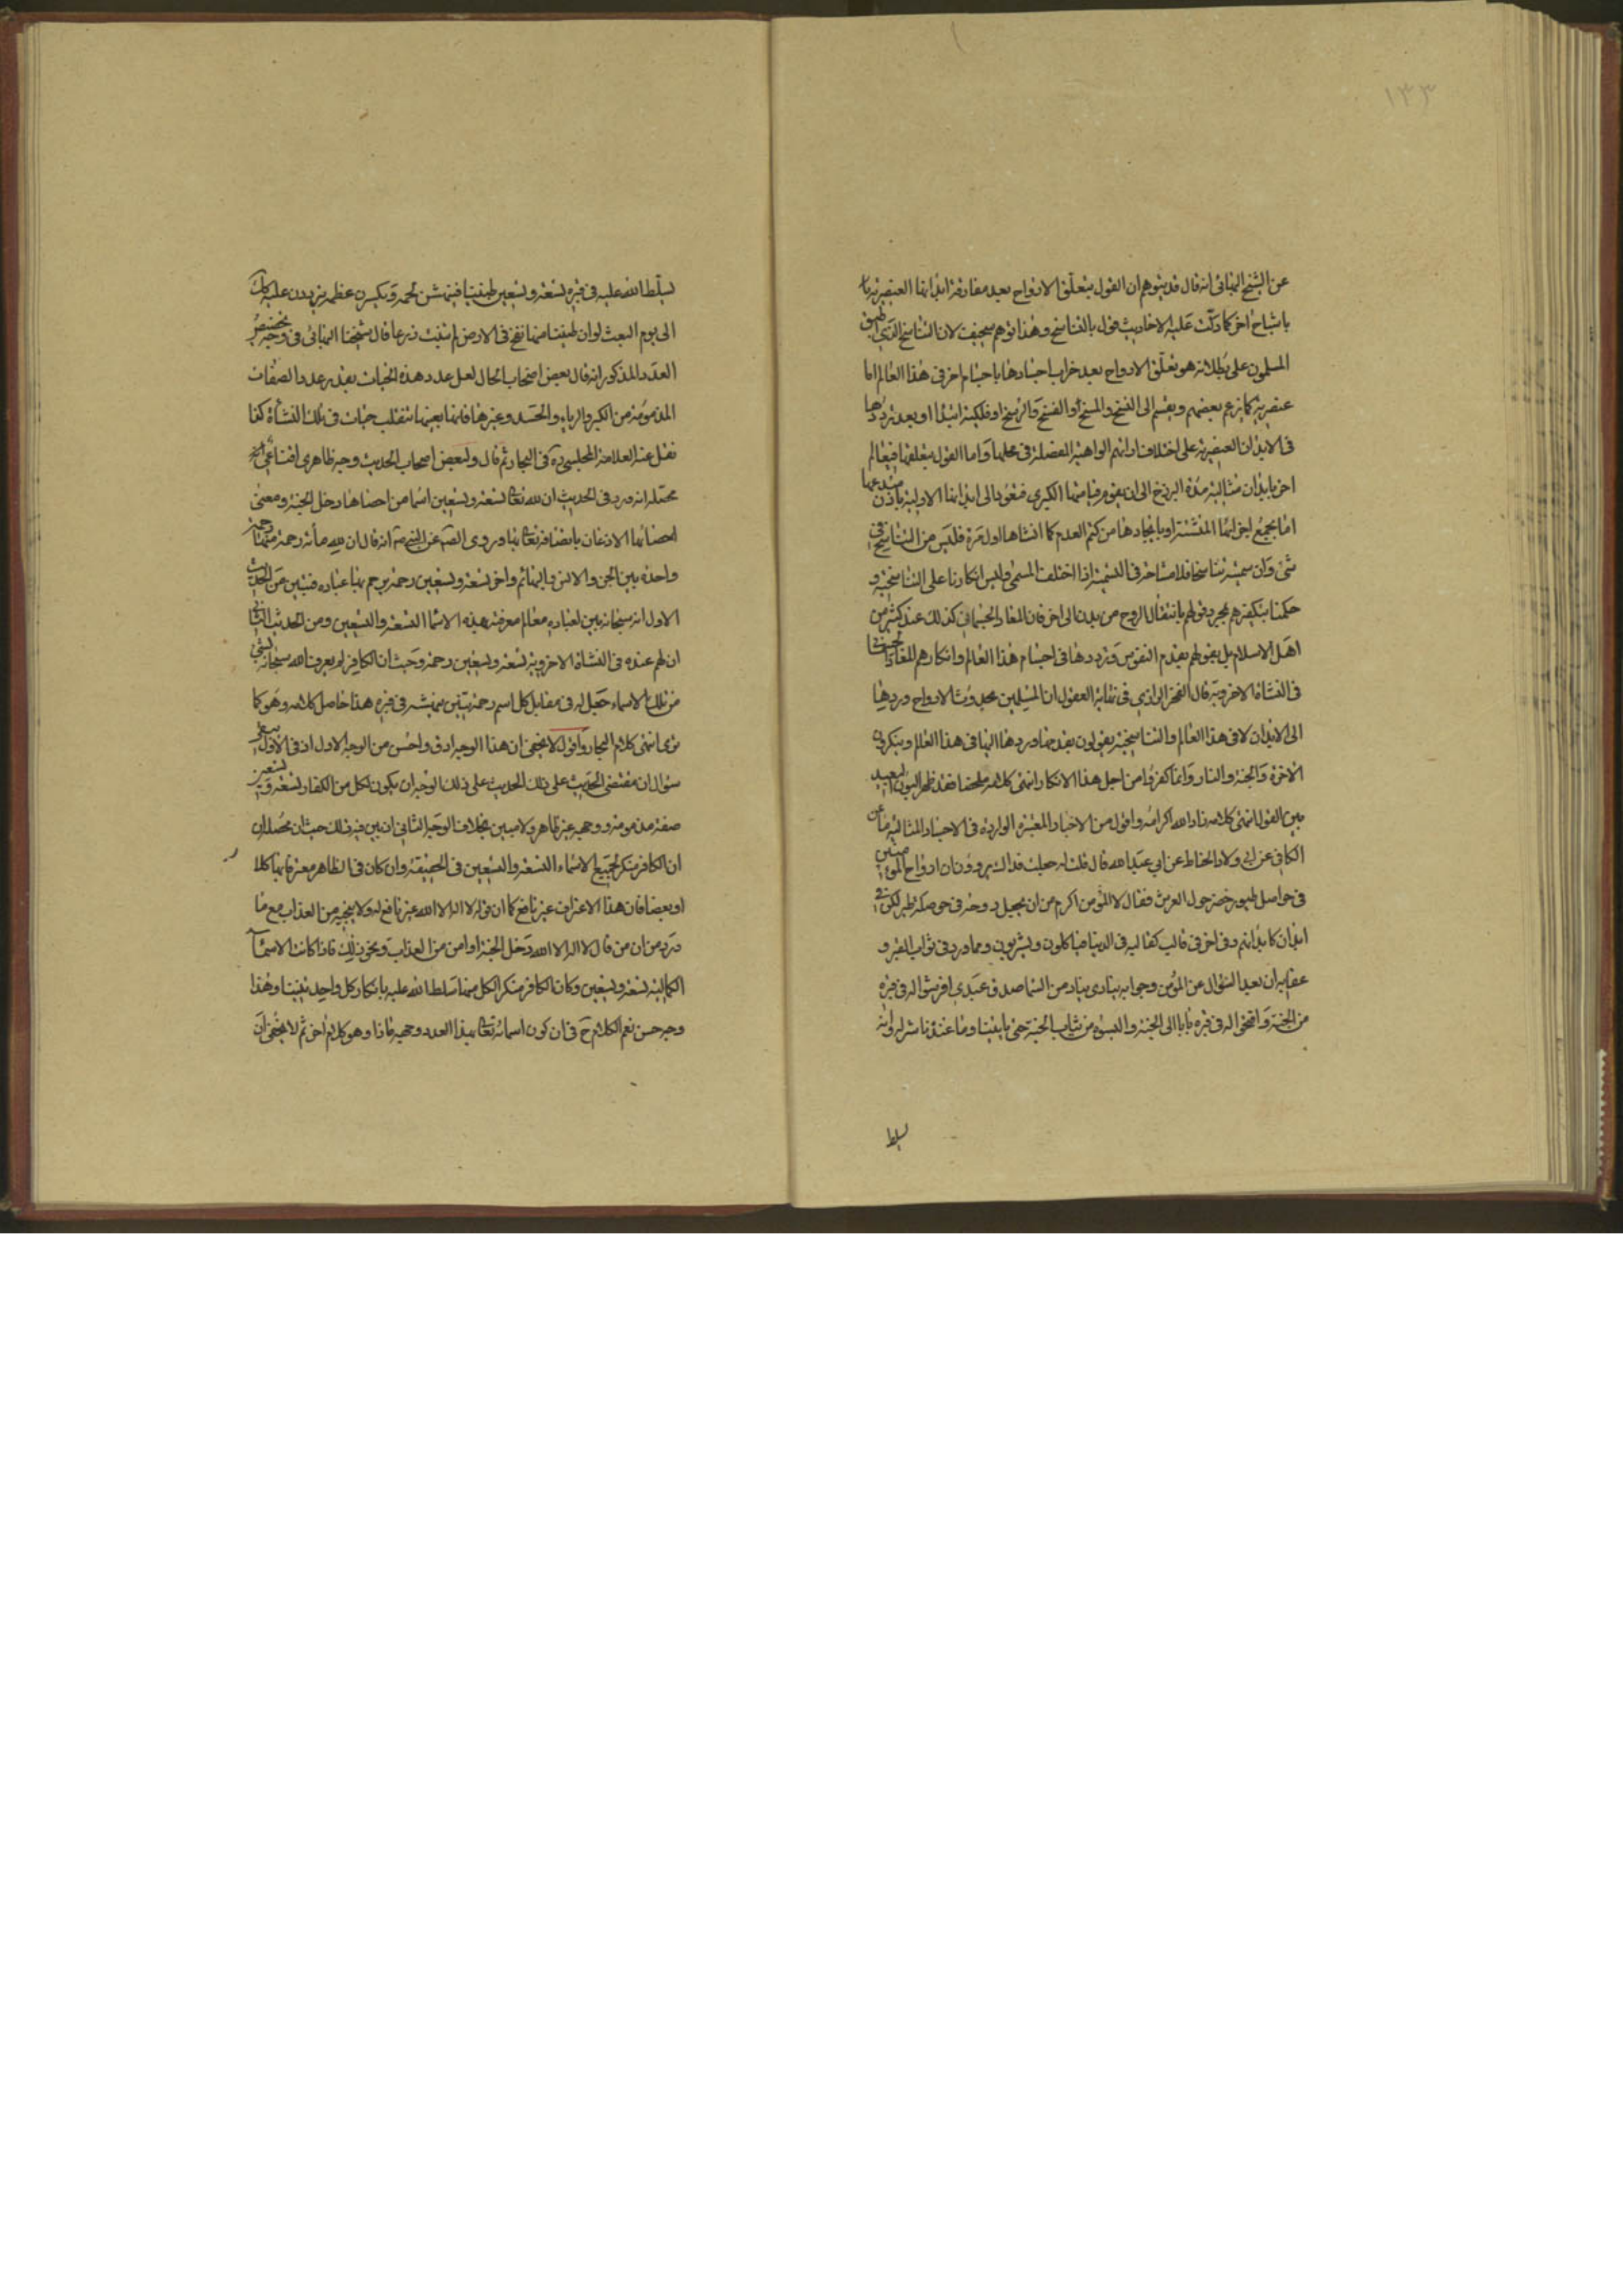 ١٣٣
عن الشيخ البهائى انه قال قد يتوهم ان القول بتعلق الارواح بعد مفارقة ابدانها العنصرية
باشباح اخر كما دلت عليه الاحاديث قول بالتناسخ وهذا توهم سخيف لان التناسخ الذى اطبق
المسلمون على بطلانه هو تعلق الارواح بعد خراب اجسادها باجسام اخر فى هذا العالم اما
عنصرية كما يزعم بعضهم ويقسم الى النسخ والمسخ او الفسخ والرسخ او فلكية ابتداء او بعد ترددها
فى الابدان العنصرية على اختلاف ارائهم الواهية المفصلة فى محلها واما القول بتعلقها فى عالم
اخر بابدان مثالية مدة البرزخ الى ان يقوم قيامتها الكبرى فتعود الى ابدانها الاولية باذن مبدعها
اما بجمع اجزائها المتشتتة او بايجادها من كتم العدم كما انشاها اول مرة فليس من التناسخ فى
شئ وان سميته تناسخا فلا مشاحة فى التسمية اذا اختلف المسمى وليس انكارنا على التناسخية و
حكمنا بتكفيرهم بمجرد قولهم بانتقال الروح من بدن الى اخر فان المعاد الجسمانى كذلك عند كثير من
اهل الاسلام بل بقولهم بقدم النفوس وترددها فى اجسام هذا العالم وانكارهم المعاد الجسمانى
فى النشاة الاخروية قال الفخر الرازى فى نهاية العقول ان المسلمين بحدوث الارواح وردها
الى الابدان لا فى هذا العالم والتناسخية يقولون بقدمها وردها اليها فى هذا العالم وينكرون
الاخرة والجنة والنار وانما كفروا من اجل هذا الانكار انتهى كلامه ملخصا فقد ظهر البون البعيد
بين القول انتهى كلامه زاد الله اكرامه واقول من الاخبار المعتبرة الواردة فى الاجساد المثالية ما عن
الكافى عن ابى ولاد الحناط عن ابى عبد الله قال قلت له جعلت فداك يروون ان ارواح المؤمنين
فى حواصل طيور خضر حول العرش فقال لا المؤمن اكرم من ان يجعل روحه فى حوصلة طير لكن فى
ابدان كابدانهم وفى اخر فى قالب كقالبه فى الدنيا فياكلون ويشربون ومما ورد فى ثواب القبر و
عقابه ان بعد السؤال عن المؤمن وجوابه ينادى مناد من السما صدق عبدى افرشوا له فى قبره
من الجنة وافتحوا له فى قبره بابا الى الجنة والبسوه من ثياب الجنة حتى ياتينا وما عندنا
يسلط
يسلط الله عليه فى قبره تسعة وتسعين تنينا فينهشن لحمه ويكسرن عظمه يترددن عليه كذلك
الى يوم البعث لو ان تنينا منها نفخ فى الارض لم انبتت زرعا قال شيخنا البهائى فى وجه تخصيص
العدد المذكور انه قال بعض اصحاب الحال لعل عدد هذه الحيات بقدر عدد الصفات
المذمومة من الكبر والرياء والحسد وغيرها فانها بعينها تنقلب حيات فى تلك النشأة كذا
نقل عنه العلامة المجلسى ره فى البحار ثم قال ولبعض اصحاب الحديث وجه ظاهرى اقناعى
محصله انه ورد فى الحديث ان لله تعالى تسعة وتسعين اسما من احصاها دخل الجنة ومعنى
احصائها الاذعان باتصافه تعالى بها وروى الصدوق عن النبى ص انه قال ان لله مائة رحمة منها رحمة
واحدة بين الجن والانس والبهائم واخر تسعة وتسعين رحمة يرحم بها عباده فتبين من الحديث
الاول انه سبحانه بين لعباده معالم معرفته بهذه الاسماء التسعة والتسعين ومن الحديث الثانى
ان لهم عنده فى النشاة الاخروية تسعة وتسعين رحمة وحيث ان الكافر لم يعرف الله سبحانه بشئ
من تلك الاسماء جعل له فى مقابل كل اسم رحمة تنين ينهشه فى قبره هذا حاصل كلامه وهو كما
ترى انتهى كلام البحار واقول لا يخفى ان هذا الوجه ادق واحسن من الوجه الاول اذ فى الاول يبقى
سؤال ان مقتضى الحديث على ذلك الوجه ان يكون لكل من الكفار تسعة وتسعين
صفة مذمومة ووجهه غير ظاهر ولا مبين بخلاف الوجه الثانى ان بين فيه ذلك حيث ان محصله ان
ان الكافر منكر لجميع الاسماء التسعة والتسعين فى الحقيقة وان كان فى الظاهر معترفا بها كلا
او بعضا فان هذا الاعتراف غير نافع كما ان قوله لا اله الا الله غير نافع له ولا ينجيه من العذاب مع ما
ورد من ان من قال لا اله الا الله دخل الجنة او امن من العذاب ونحو ذلك فاذا كانت الاسماء
الكمالية تسعة وتسعين وكان الكافر منكر الكل منها سلط الله عليه بانكار كل واحد تنينا وهذا
وجه حسن نعم الكلام ح فى ان كون اسمائه تعالى بهذا العدد وجهه ماذا وهو كلام اخر ثم لا يخفى ان